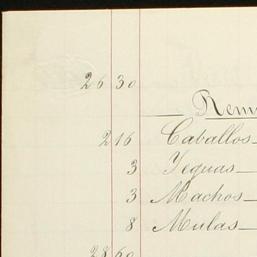 26 30
Rem
216 Caballos
3 Yeguas
3 Machos
8 Mulas
28 60